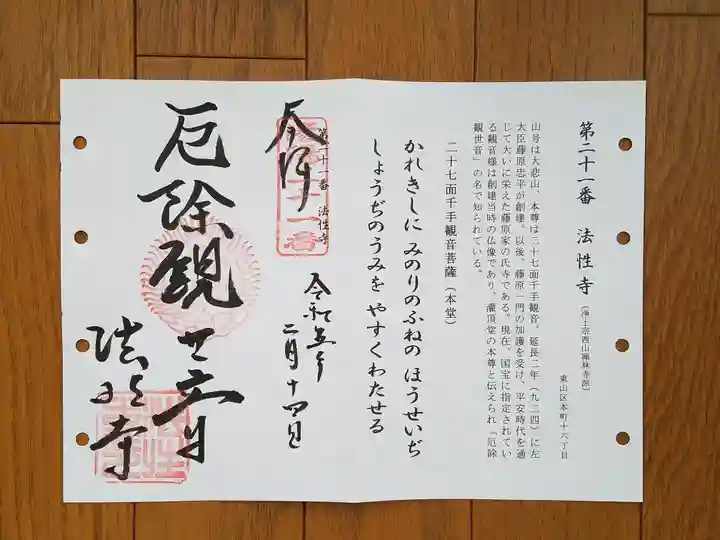 第二十一番　法性寺（浄土宗西山禅林寺派）
東山区本町十六丁目
山号は大悲山、本尊は二十七面千手観音。延長二年（九二四）に左
大臣藤原忠平が創建。以後、藤原一門の加護を受け、平安時代を通
じて大いに栄えた藤原家の氏寺である。現在、国宝に指定されてい
る観音様は創建当時の仏像であり、灌頂堂の本尊と伝えられ「厄除
観世音」の名で知られている。
二十七面千手観音菩薩（本堂）
かれきしに みのりのふねの ほうせいぢ
しょうぢのうみを やすくわたせる
第二十一番　法性寺
奉拝
令和五年
二月十四日
厄除観世音
法性寺